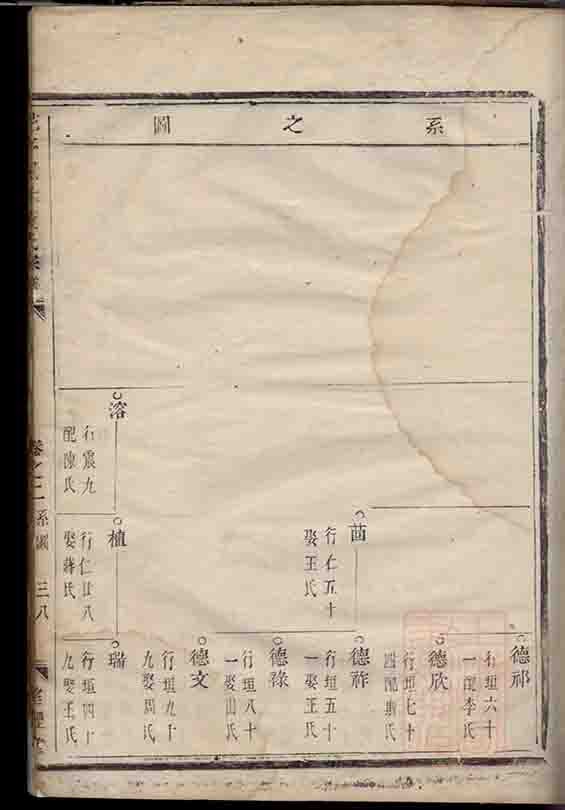 系之圖
德祁
行垣六十
一配李氏
德欣
行垣七十
四配
氏
茴
行仁五十
娶王氏
德祚
行垣五十
一娶王氏
德祿
行垣八十
一娶山氏
德文
行垣九十
九娶周氏
溶
行震九
配陳氏
植
行仁廿八
娶蔣氏
瑞
行垣四十
九娶王氏
卷之二
系圖
三八